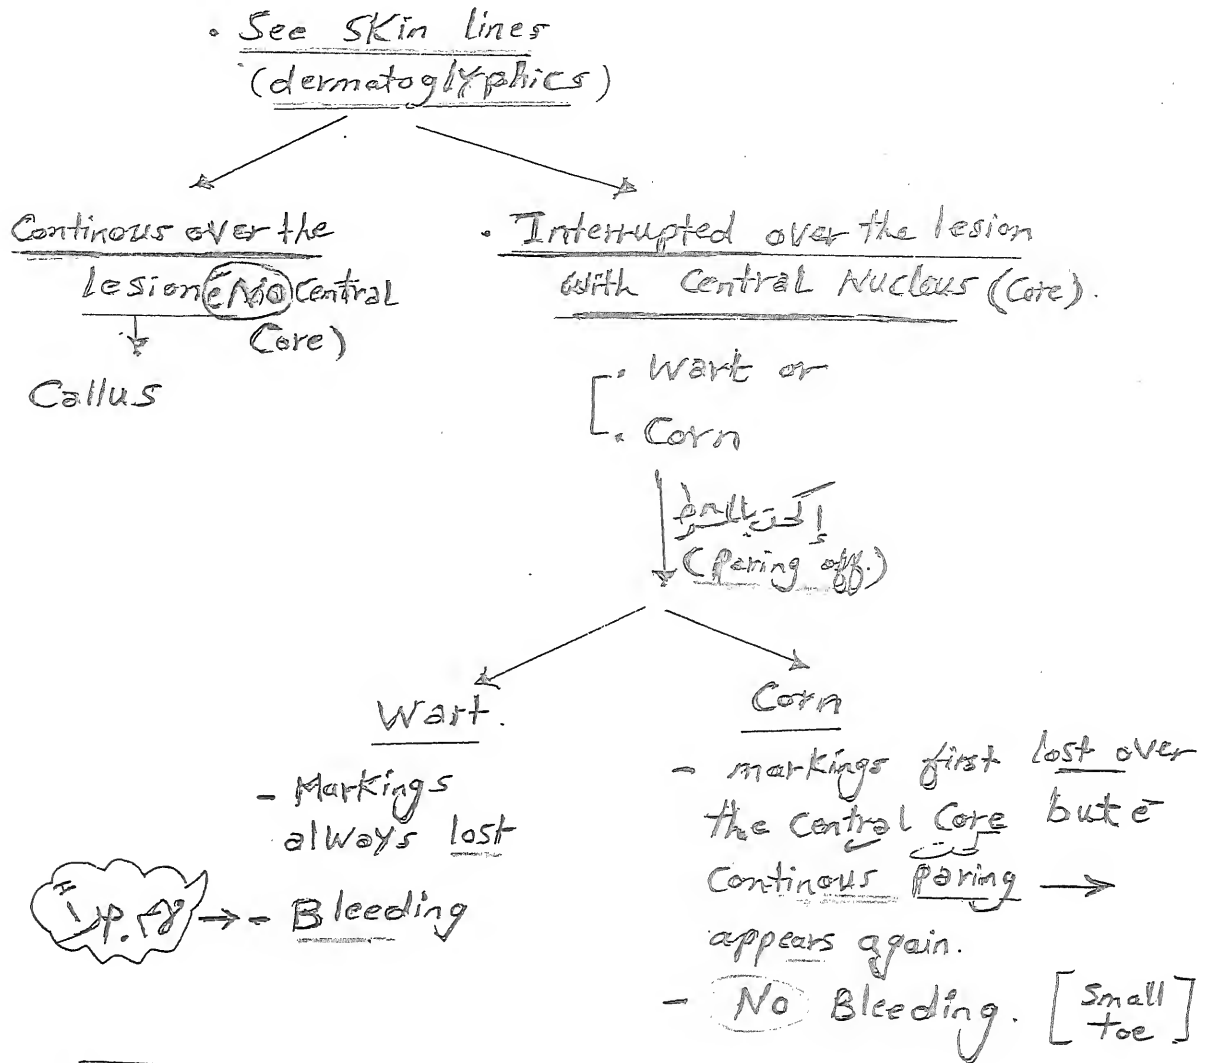 • See Skin lines
(dermatoglyphics)
Continous over the
lesion (ē No Central
Core)
Callus
• Interrupted over the lesion
with Central Nucleus (Core).
• Wart or
• Corn
(Paring off.)
Wart.
- Markings
always lost
- Bleeding
Corn
- markings first lost over
the central Core but ē
كحت
Continous Paring →
appears again.
- No Bleeding. [Small
toe]